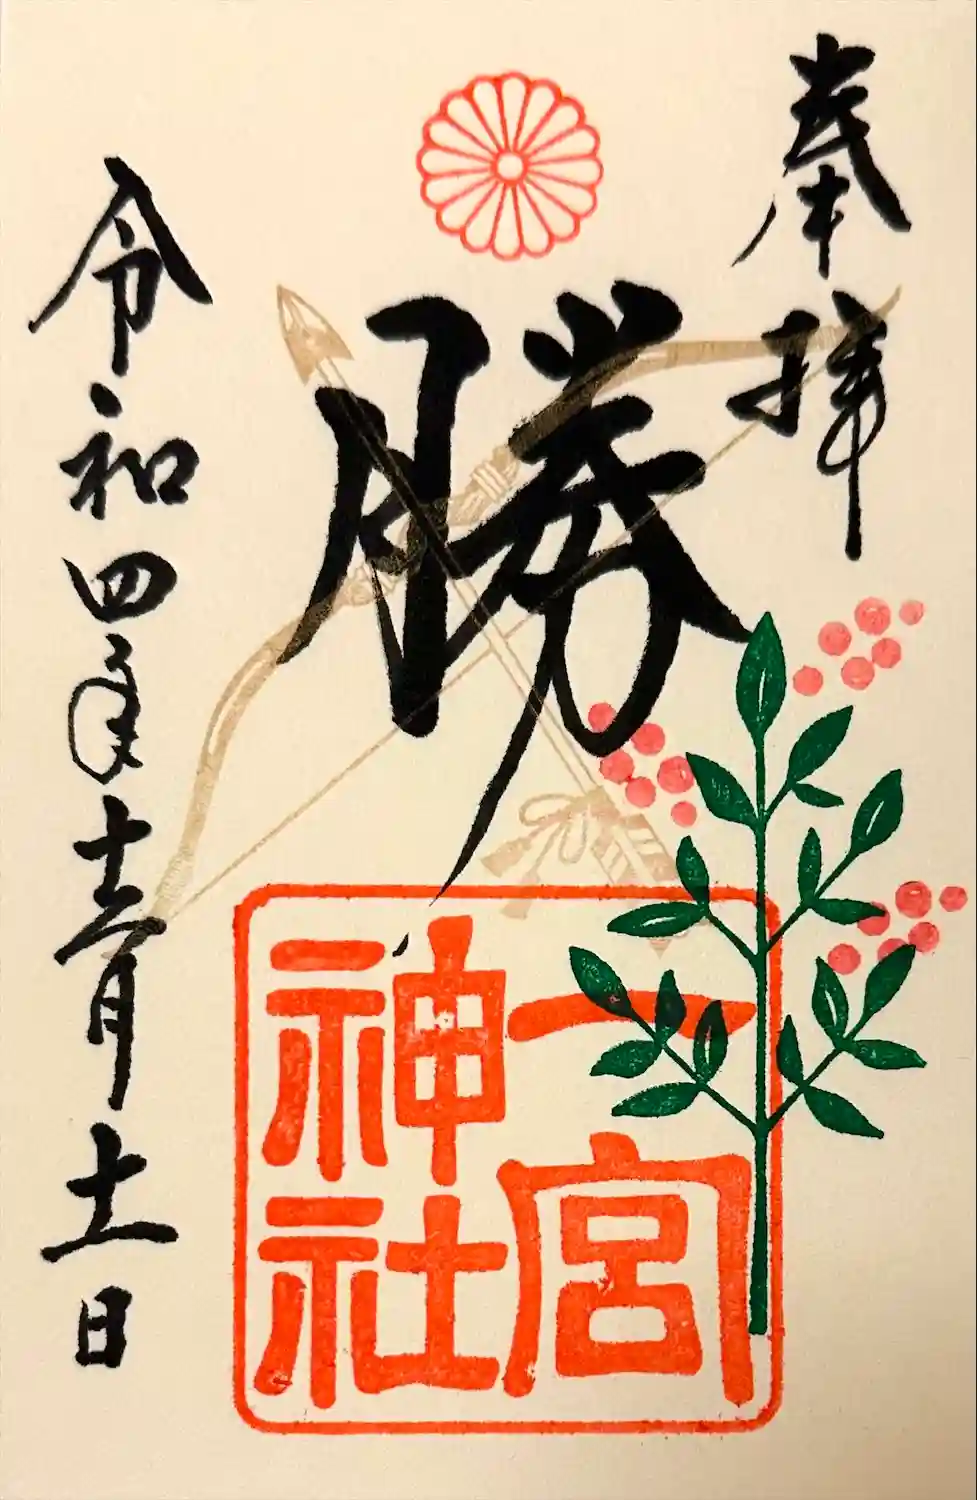 奉拝
勝
一宮
神社
令和四年十二月十一日